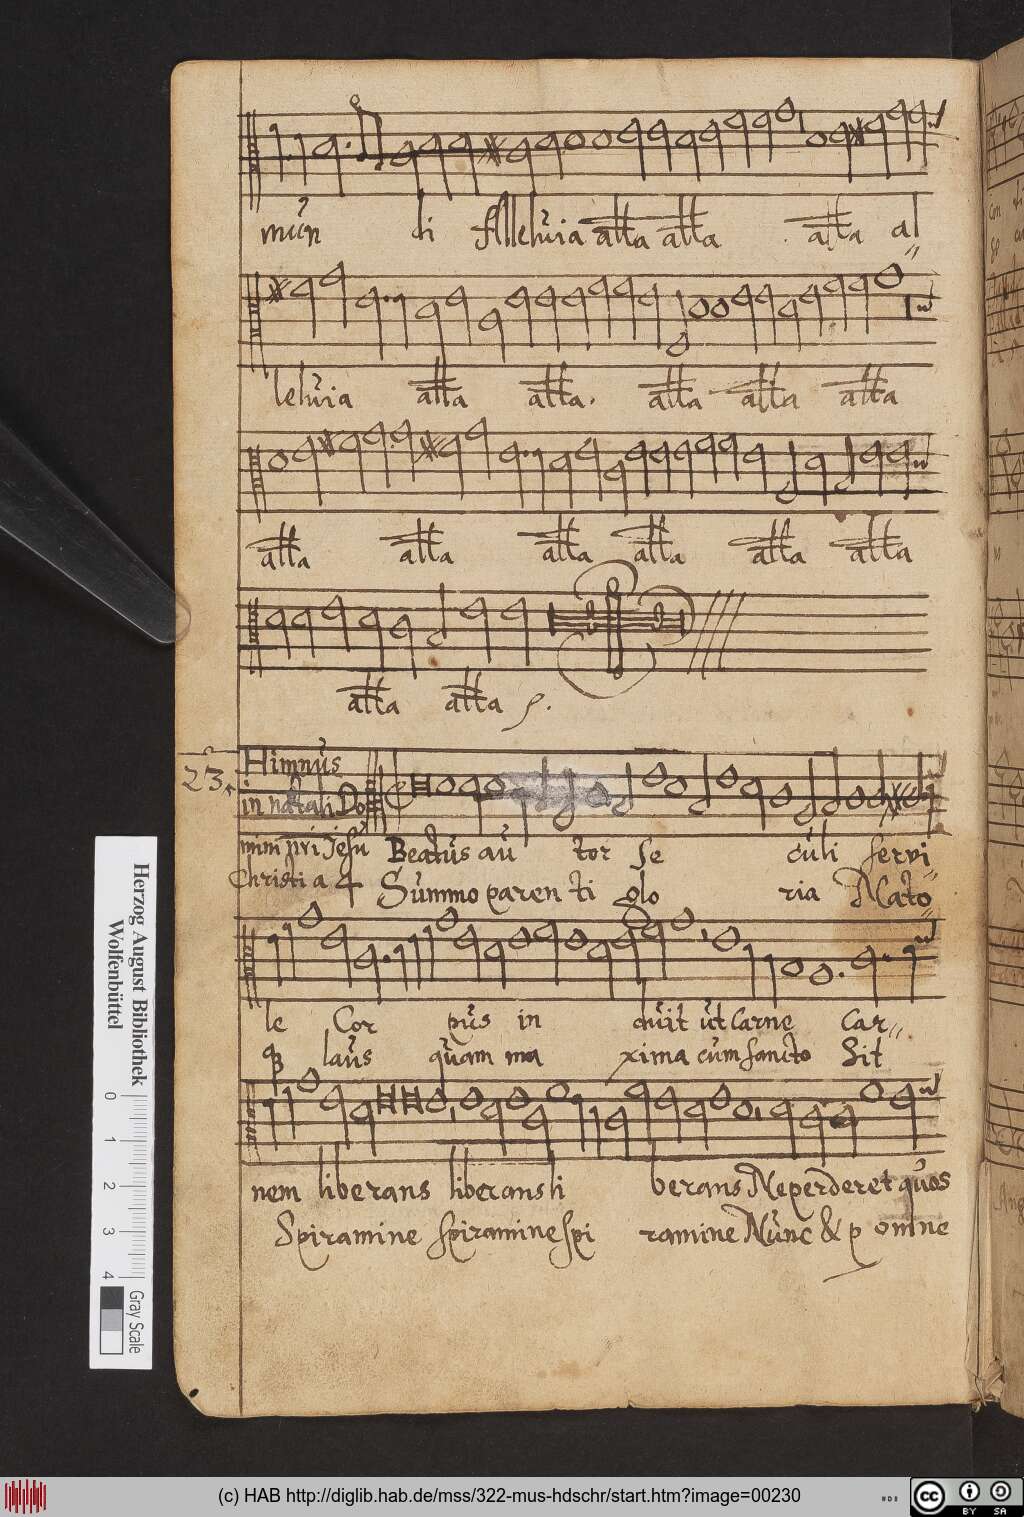 mün di Alleluia alla alla alla al=
leluia alla alla. alla alla alla
alla alla alla alla alla alla
alla alla
23.
Himnus
in natali Do
mini nri Jesu Beatus au tor se culi servi=
Christi a 4 Summo paren ti glo ria Nato=
le Cor pus in duit ut Carne Car=
q3 laus quam ma xima cum sancto Sit
nem liberans liberans li berans Ne perderet quos
Spiramine spiramine spi ramine Nunc & p omne
Herzog August Bibliothek
Wolfenbüttel
0 1 2 3 4
Gray Scale
(c) HAB http://diglib.hab.de/mss/322-mus-hdschr/start.htm?image=00230
cc BY SA